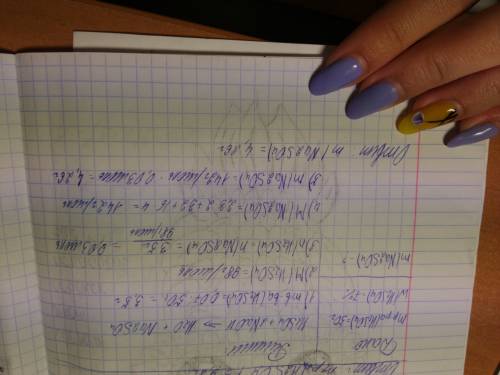 Дано
mр-ра(H₂SO₄)=50г
w(H₂SO₄)=7%
m(Na₂SO₄)-?
Решение
H₂SO₄+2NaOH → H₂O + Na₂SO₄
1) mв-ва(H₂SO₄)=0,07·50г = 3,5г
2) M(H₂SO₄)=98г/моль
3) n(H₂SO₄)=n(Na₂SO₄)= 3,5г / 98г/моль = 0,03моль
4) M(Na₂SO₄)=23·2+32+16·4=142г/моль
5) m(Na₂SO₄)=142г/моль·0,03моль=4,26г
Ответ m(Na₂SO₄)=4,26г